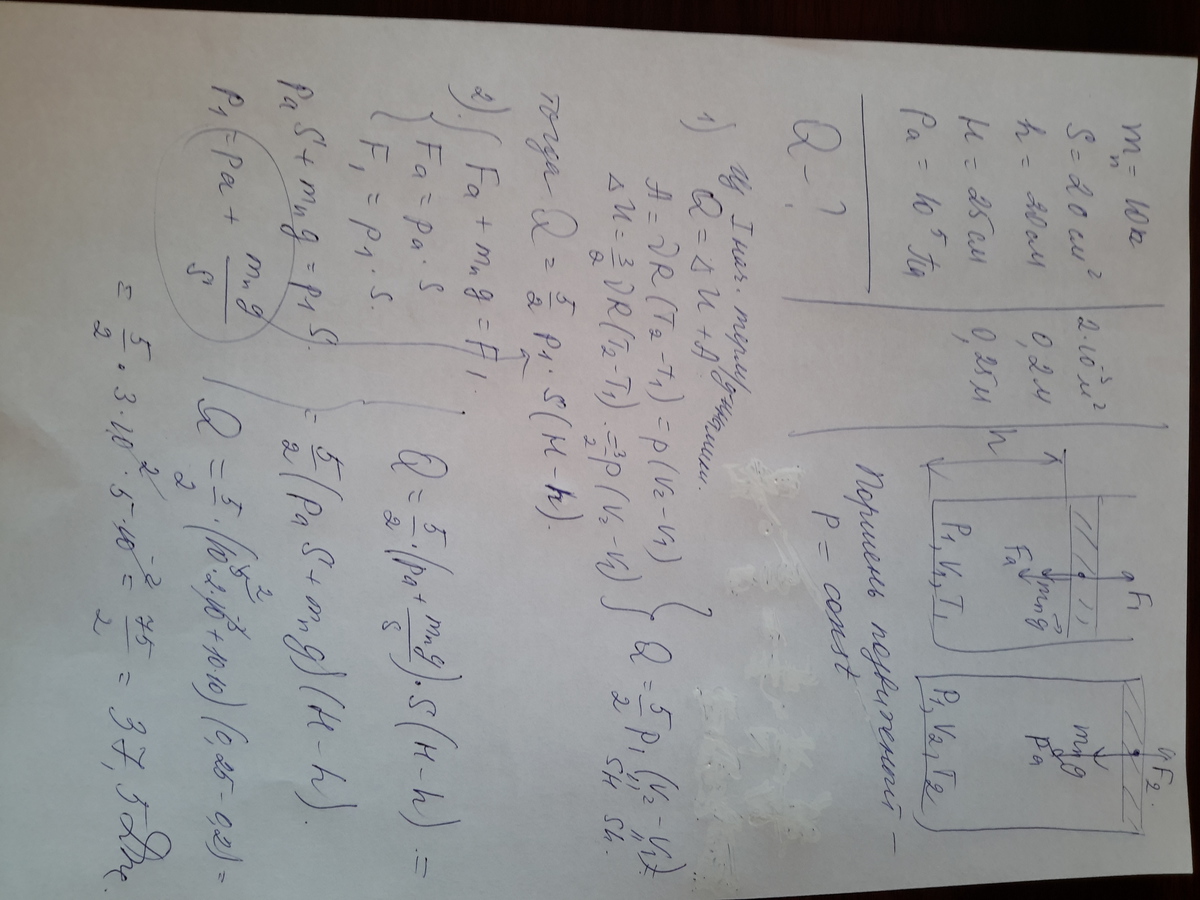 mₙ = 10кг
S = 20 см² 2·10⁻³ м²
h = 20см 0,2м
H = 25см 0,25м
Pa = 10⁵ Па
Q - ?
h
F₁
mₙg
Fa
P₁, V₁, T₁
F₂
mₙg
Pa
P₁, V₂, T₂
Поршень подвижный –
p = const
1) Из I нач. термодинамики.
Q = ΔU + A.
A = νR(T₂ - T₁) = p(V₂ - V₁)
ΔU = 3/2 νR(T₂ - T₁) = 3/2 p(V₂ - V₁)
Q = 5/2 p₁(V₂ - V₁).
SH Sh.
тогда Q = 5/2 p₁ · S(H - h).
2) { Fa + mₙg = F₁.
Fa = pa · S
F₁ = p₁ · S.
pa S + mₙg = p₁ S.
p₁ = pa + mₙg/S
Q = 5/2 · (pa + mₙg/S) · S(H - h) =
= 5/2 (pa S + mₙg)(H - h).
Q = 5/2 · (10⁵ · 2·10⁻³ + 10·10)(0,25 - 0,2) =
= 5/2 · 3·10² · 5·10⁻² = 75/2 = 37,5 Дж.